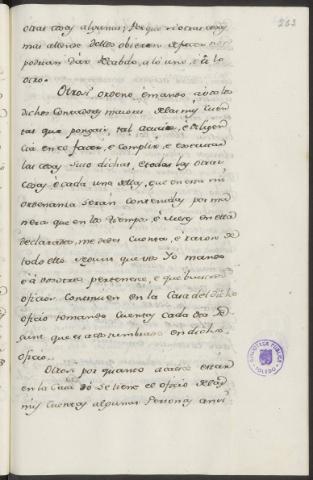 263
otras cosas algunas; porque si otras cosas
mas allende dellos obieren de facer
podran dár recabdo, a lo uno, è à lo
otro.
Otrosi ordeno, è mando à vos los
dichos Contadores maiores de las mis Cuen-
tas que pongais, tal acucia, è diligen-
cia en facer, è complir, è executar
las cosas suso dichas, è todas las otras
cosas, è cada una dellas, que en esta mi
ordenanza seran contenidas por ma-
nera que en los tiempos è veces en ella
declarados, me dedes Cuenta, è razon de
todo ello segun que vos Yo mando
è à vosotros pertenece, è que
oficiales continuen en la Casa del dicho
oficio tomando Cuentas cada dia se-
gun, que es acostumbrado en dicho
oficio.
Otrosi por quanto acaece estar
en la Casa dó se tiene el oficio de las
mis Cuentas algunas Personas
BIBLIOTECA PUBLICA
TOLEDO